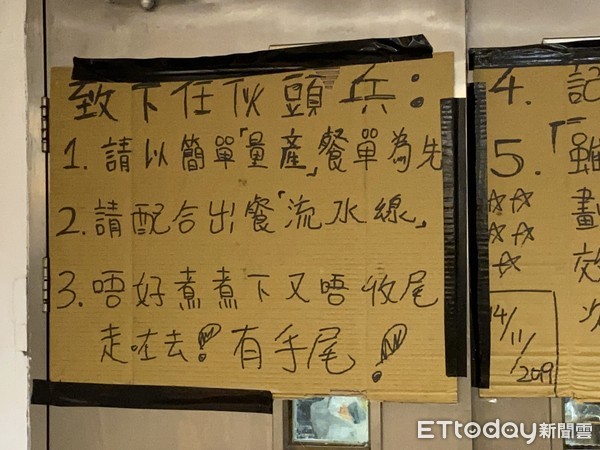 致下任伙頭兵：
1. 請以簡單「量產」餐單為先
2. 請配合出餐「流水線」
3. 唔好煮煮下又唔收尾
走咗去！有手尾！
4. 記
5.「雖
劃
效
次
14/11/2019
ETtoday新聞雲